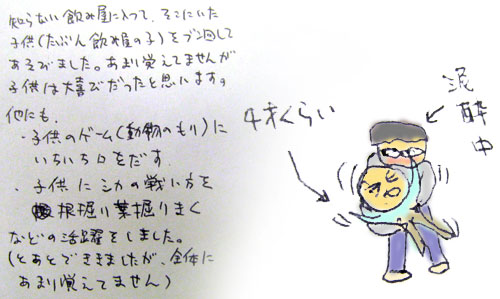 知らない飲み屋に入って、そこにいた
子供(たぶん飲み屋の子)をブン回して
あそびました。あまり覚えてませんが
子供は大喜びだったと思います。
他にも、
・子供のゲーム(動物のもり)に
いちいち口をだす
・子供にシカの戦い方を
根掘り葉掘りきく
などの活躍をしました。
(とあとできましたが、全体に
あまり覚えてません)
4才くらい
泥酔中